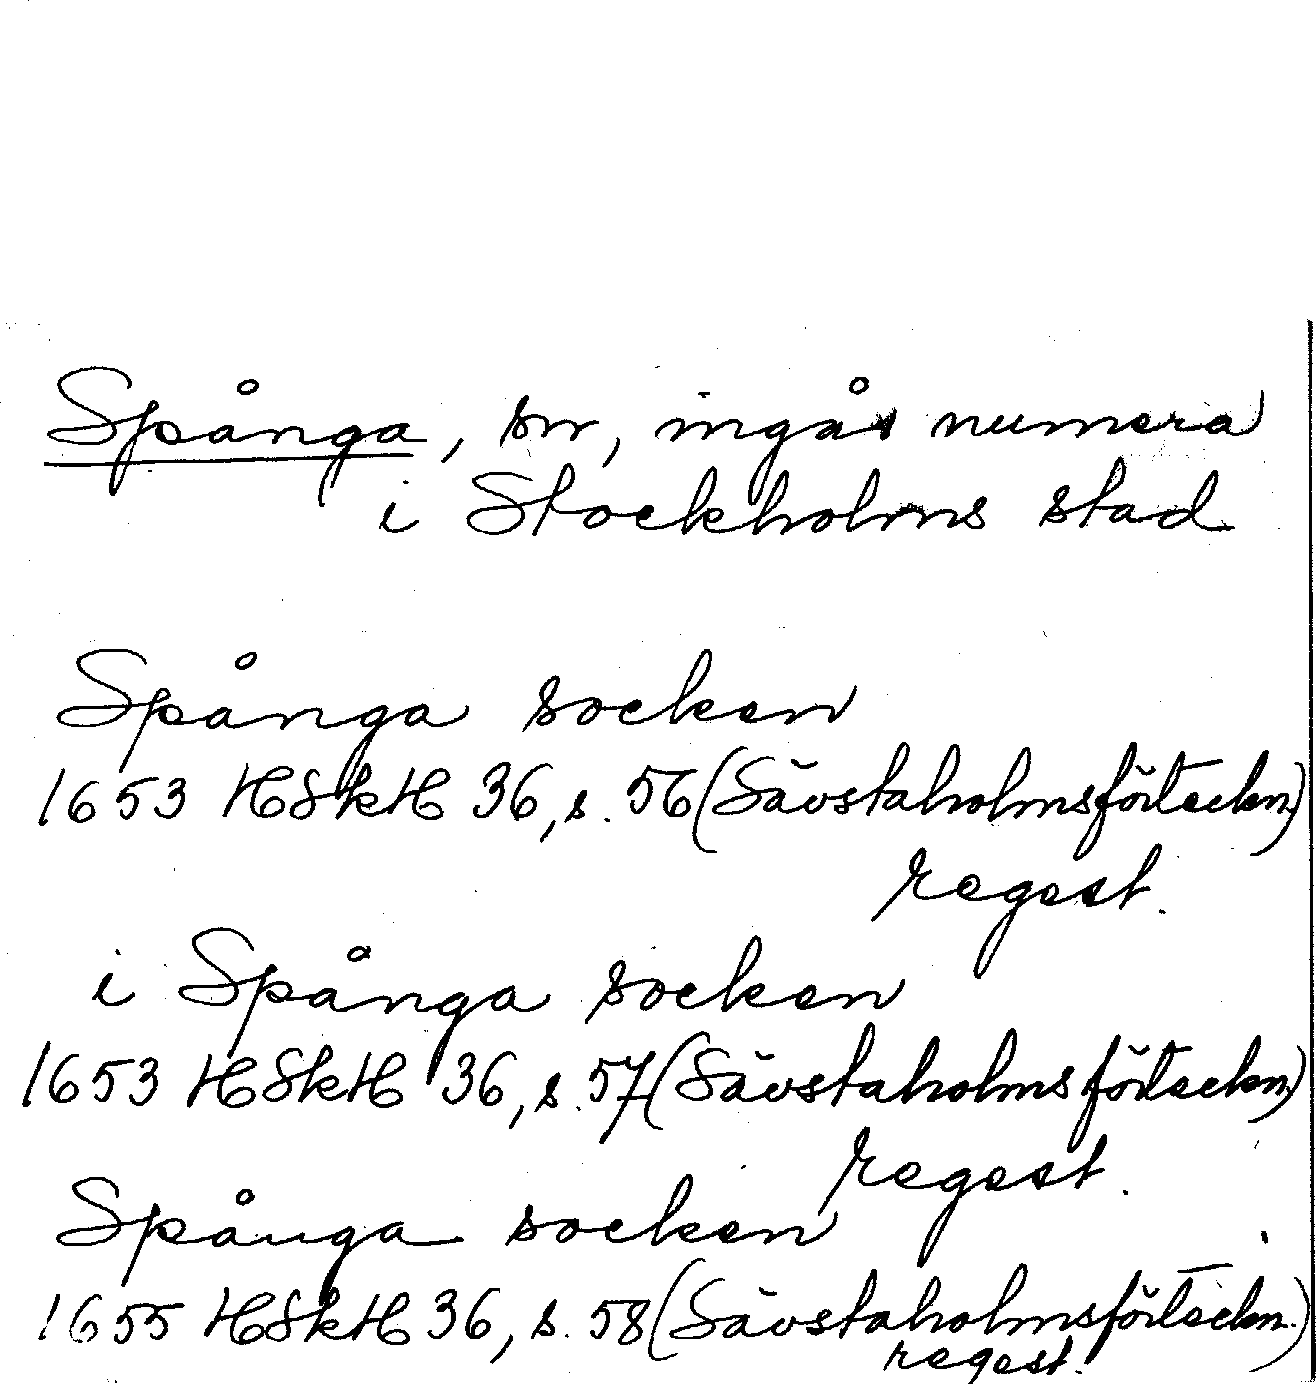 Spånga, sn, ingår numera
i Stockholms stad
Spånga socken
1653 HSkH 36, s. 56 (Sävstaholmsförteckn)
regest.
i Spånga socken
1653 HSkH 36, s. 57 (Sävstaholmsförteckn)
regest.
Spånga socken
1655 HSkH 36, s. 58 (Sävstaholmsförteckn.)
regest.